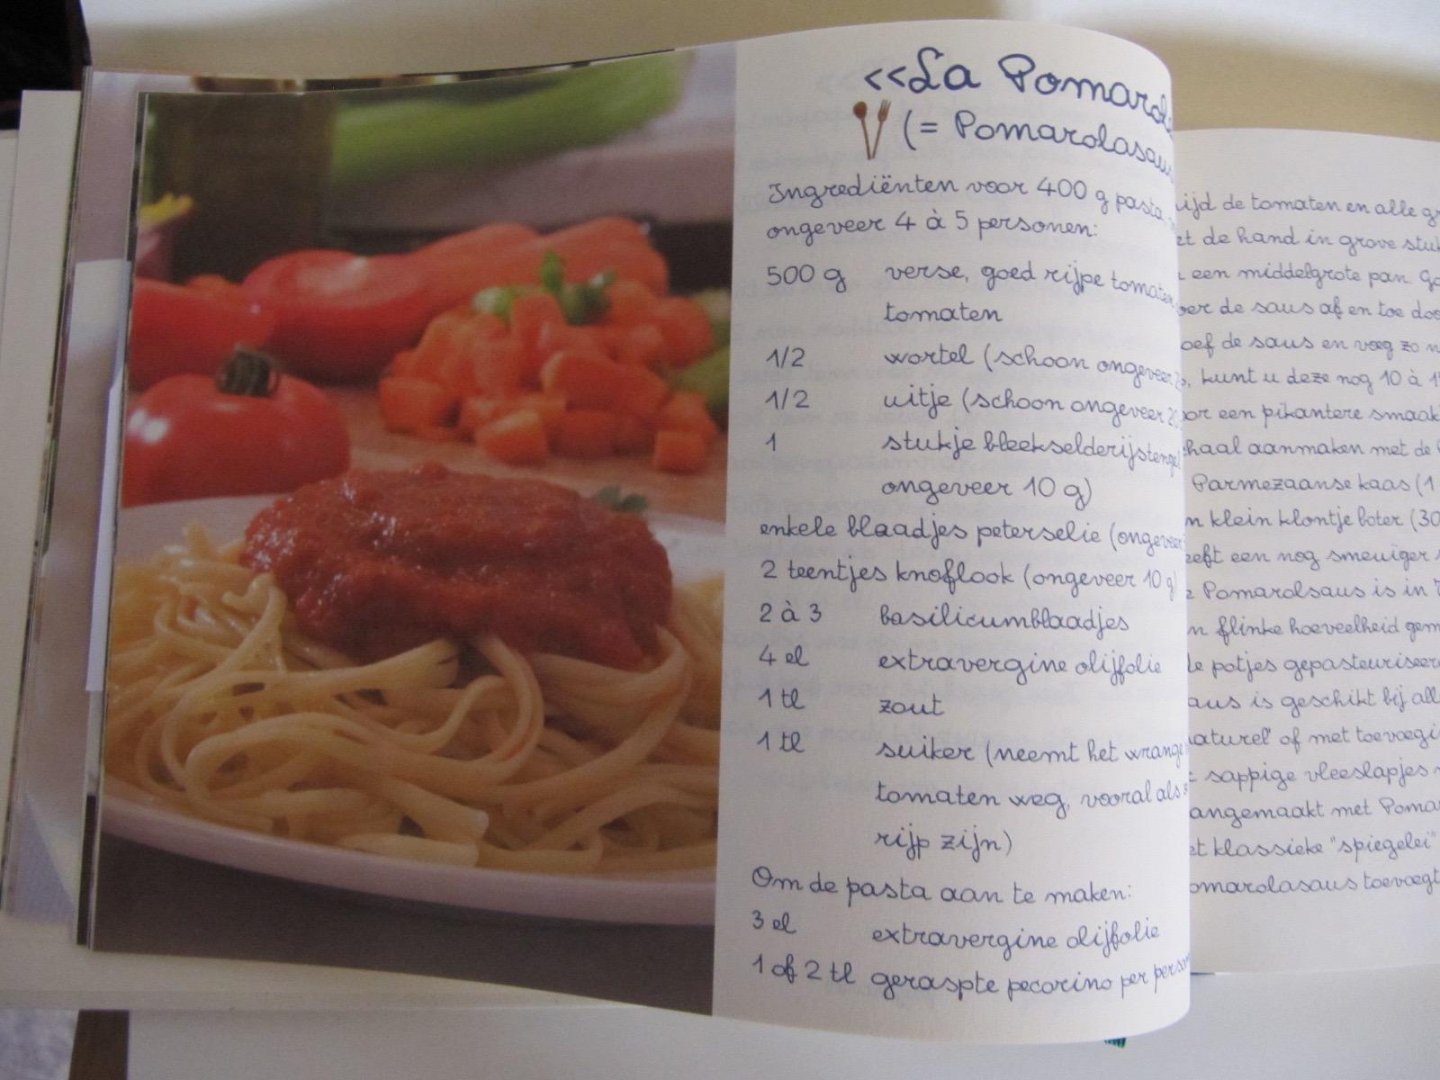 <<La
(= Pomarolasaus
Ingrediënten voor 400 g pasta
ongeveer 4 à 5 personen:
500 g verse, goed rijpe tomaten
tomaten
1/2 wortel (schoon ongeveer
1/2 uitje (schoon ongeveer
1 stukje bleekselderijstengel
ongeveer 10 g)
enkele blaadjes peterselie (ongeveer
2 teentjes knoflook (ongeveer 10 g)
2 à 3 basilicumblaadjes
4 el extravergine olijfolie
1 tl zout
1 tl suiker (neemt het wrange
tomaten weg, vooral als
rijp zijn)
Om de pasta aan te maken:
3 el extravergine olijfolie
1 of 2 tl geraspte pecorino per
de tomaten en alle
de hand in grove
een middelgrote pan.
de saus af en toe
de saus en voeg zo
kunt u deze nog 10 à
een pikantere smaak
aanmaken met de
Parmezaanse kaas (1
klein klontje boter (30
een nog smeuïger
Pomarolsaus is in
flinke hoeveelheid
potjes
is geschikt bij
of met
sappige vleeslapjes
aangemaakt met
klassieke "spiegelei"
Pomarolasaus toevoegt